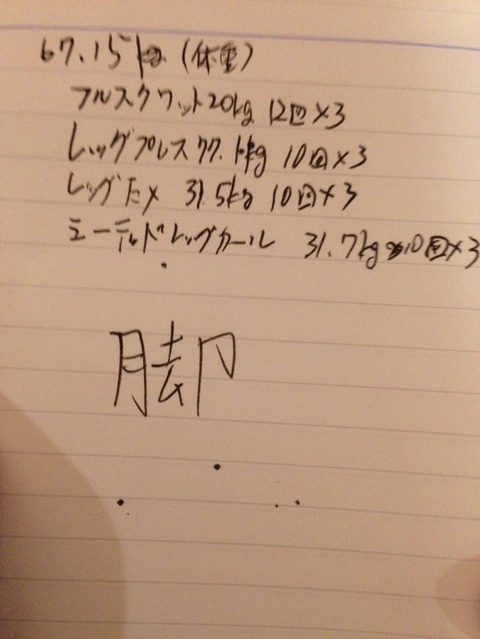 67.15kg (体重)
フルスクワット20kg 12回×3
レッグプレス77.1kg 10回×3
レッグ 31.5kg 10回×3
シーテッドレッグカール 31.7kg 10回×3
脚